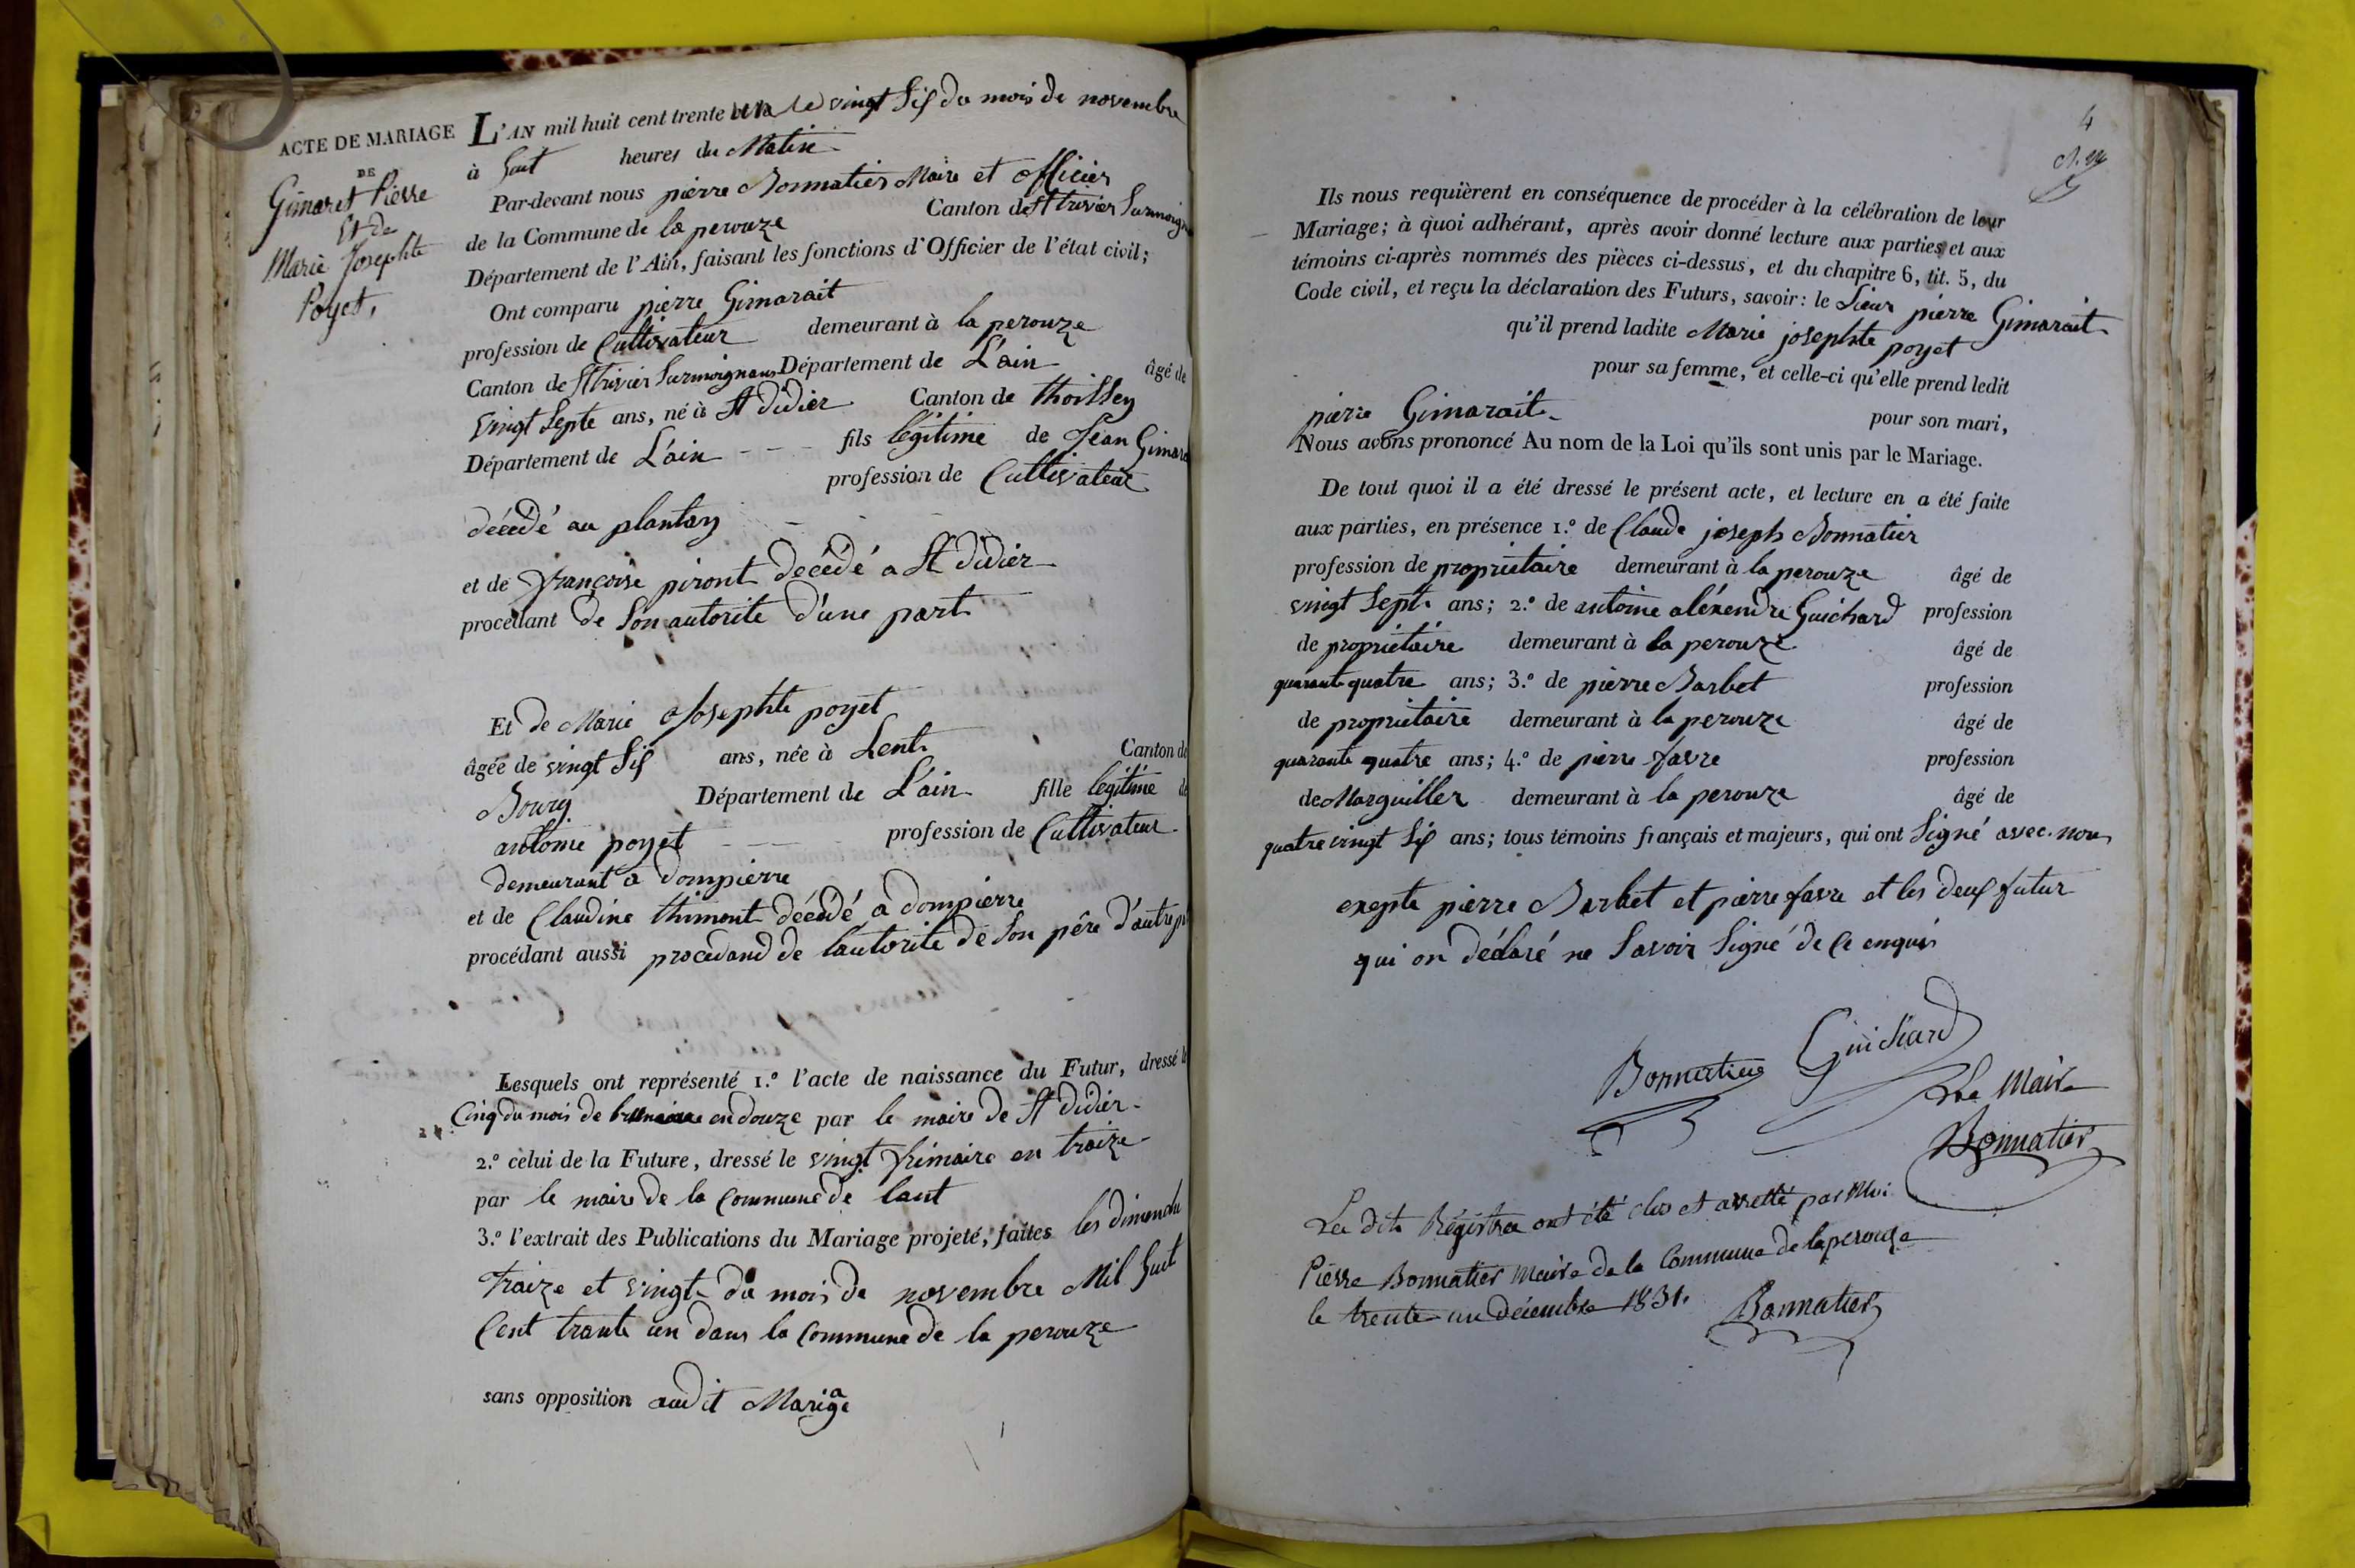 ACTE DE MARIAGE
DE
Gimaret Pierre
Et de
Marie Josephte
Poyet,
L'AN mil huit cent trente un le vingt Six du mois de novembre
à huit heures du Matin
Par-devant nous pierre Bonnatier Maire et officier
de la Commune de la perouze Canton de St trivier Surmoign
Département de l'Ain, faisant les fonctions d'Officier de l'état civil;
Ont comparu pierre Gimarait
profession de Cultivateur demeurant à la perouze
Canton de St trivier Surmoignans Département de L'ain âgé de
vingt Septe ans, né à St didier Canton de thoissey
Département de L'ain - - - fils legitime de Jean Gimara
profession de Cultivateur
décédé au plantay
et de françoise piront décédé a St didier
procédant de Son autorite d'une part
Et de Marie Josephte poyet
âgée de vingt Six ans, née à Lent Canton de
Bourg Département de L'ain fille legitime de
antoine poyet profession de Cultivateur
demeurant a dompierre
et de Claudine thimont décédé a dompierre
procédant aussi procedand de lautorite de Son père d'autre p
Lesquels ont représenté 1.º l'acte de naissance du Futur, dressé le
Cinq du mois de brumaire en douze par le maire de St didier
2.º celui de la Future, dressé le vingt frimaire en traize
par le maire de la Commune de lant
3.º l'extrait des Publications du Mariage projeté, faites les dimenche
traize et vingt du mois de novembre Mil huit
Cent trante un dans la Commune de la perouze
sans opposition audit Mariage
4
Ils nous requièrent en conséquence de procéder à la célébration de leur
Mariage; à quoi adhérant, après avoir donné lecture aux parties et aux
témoins ci-après nommés des pièces ci-dessus, et du chapitre 6, tit. 5, du
Code civil, et reçu la déclaration des Futurs, savoir: le Sieur pierre Gimarait
qu'il prend ladite Marie josephte poyet
pour sa femme, et celle-ci qu'elle prend ledit
pierre Gimarait pour son mari,
Nous avons prononcé Au nom de la Loi qu'ils sont unis par le Mariage.
De tout quoi il a été dressé le présent acte, et lecture en a été faite
aux parties, en présence 1.º de Claude joseph Bonnatier
profession de propriétaire demeurant à la perouze âgé de
vingt Sept ans; 2.º de antoine aléxendre Guichard profession
de propriétaire demeurant à la perouze âgé de
quarante quatre ans; 3.º de pierre Barbet profession
de propriétaire demeurant à la perouze âgé de
quarante quatre ans; 4.º de pierre favre profession
de Marguiller demeurant à la perouze âgé de
quatre vingt Six ans; tous témoins français et majeurs, qui ont Signé avec nous
exepte pierre Barbet et pierre favre et les deux futur
qui on déclaré ne Savoir Signé de Ce enquis
Bonnatier Guichard
Le Maire
Bonnatier
Le dit Régistre ont été clos et arretté par Moi
Pierre Bonnatier Maire de la Commune de laperouze
le trente un décembre 1831. Bonnatier